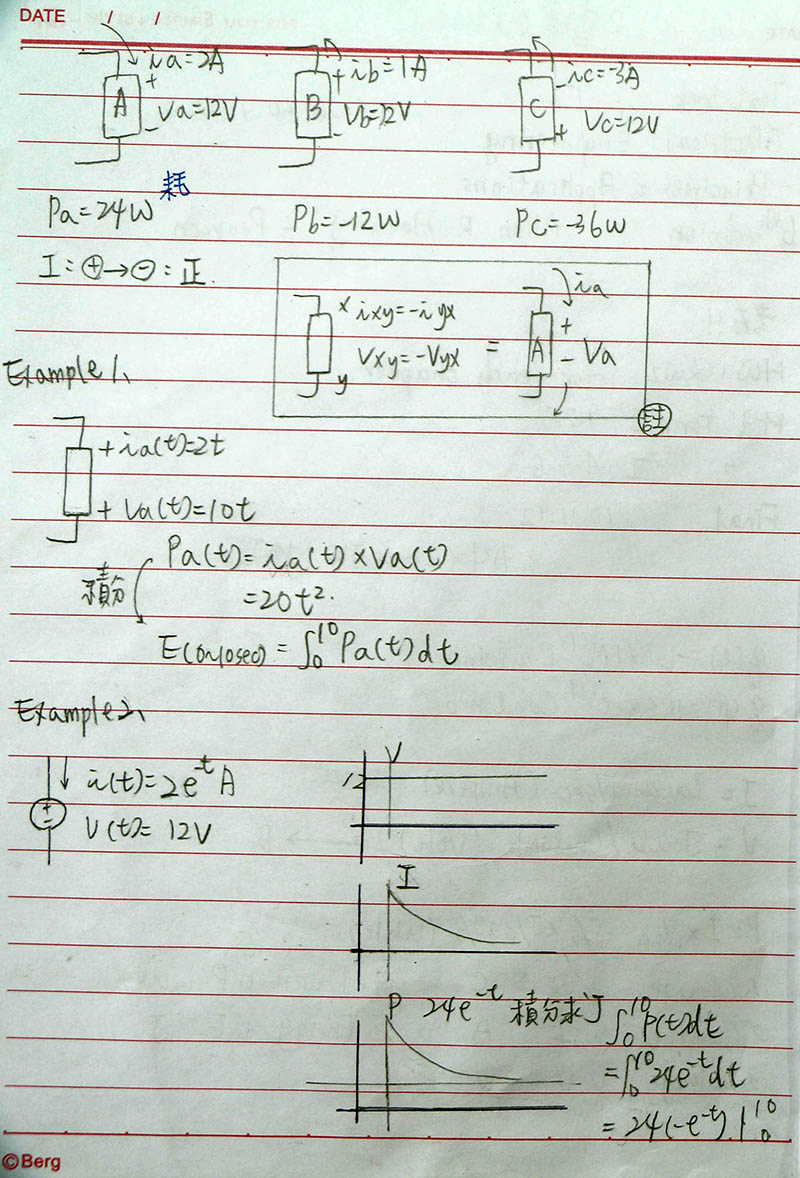 DATE / /
ia=2A
+
A
Va=12V
-
+ ib=1A
B
Vb=12V
-
- ic=-3A
C
+ Vc=12V
耗
Pa=24W
Pb=-12W
Pc=-36W
I=⊕→⊖=正.
x ixy=-iyx
Vxy=-Vyx
y
=
ia
+
A
- Va
註
Example1、
+ia(t)=2t
+Va(t)=10t
Pa(t)=ia(t)×Va(t)
積分
=20t².
E(0~10sec)=∫₀¹⁰Pa(t)dt
Example2、
i(t)=2e⁻ᵗA
+
-
V(t)=12V
V
12
I
P 24e⁻ᵗ 積分求J ∫₀¹⁰P(t)dt
=∫₀¹⁰24e⁻ᵗdt
=24(-e⁻ᵗ)|₀¹⁰
©Berg